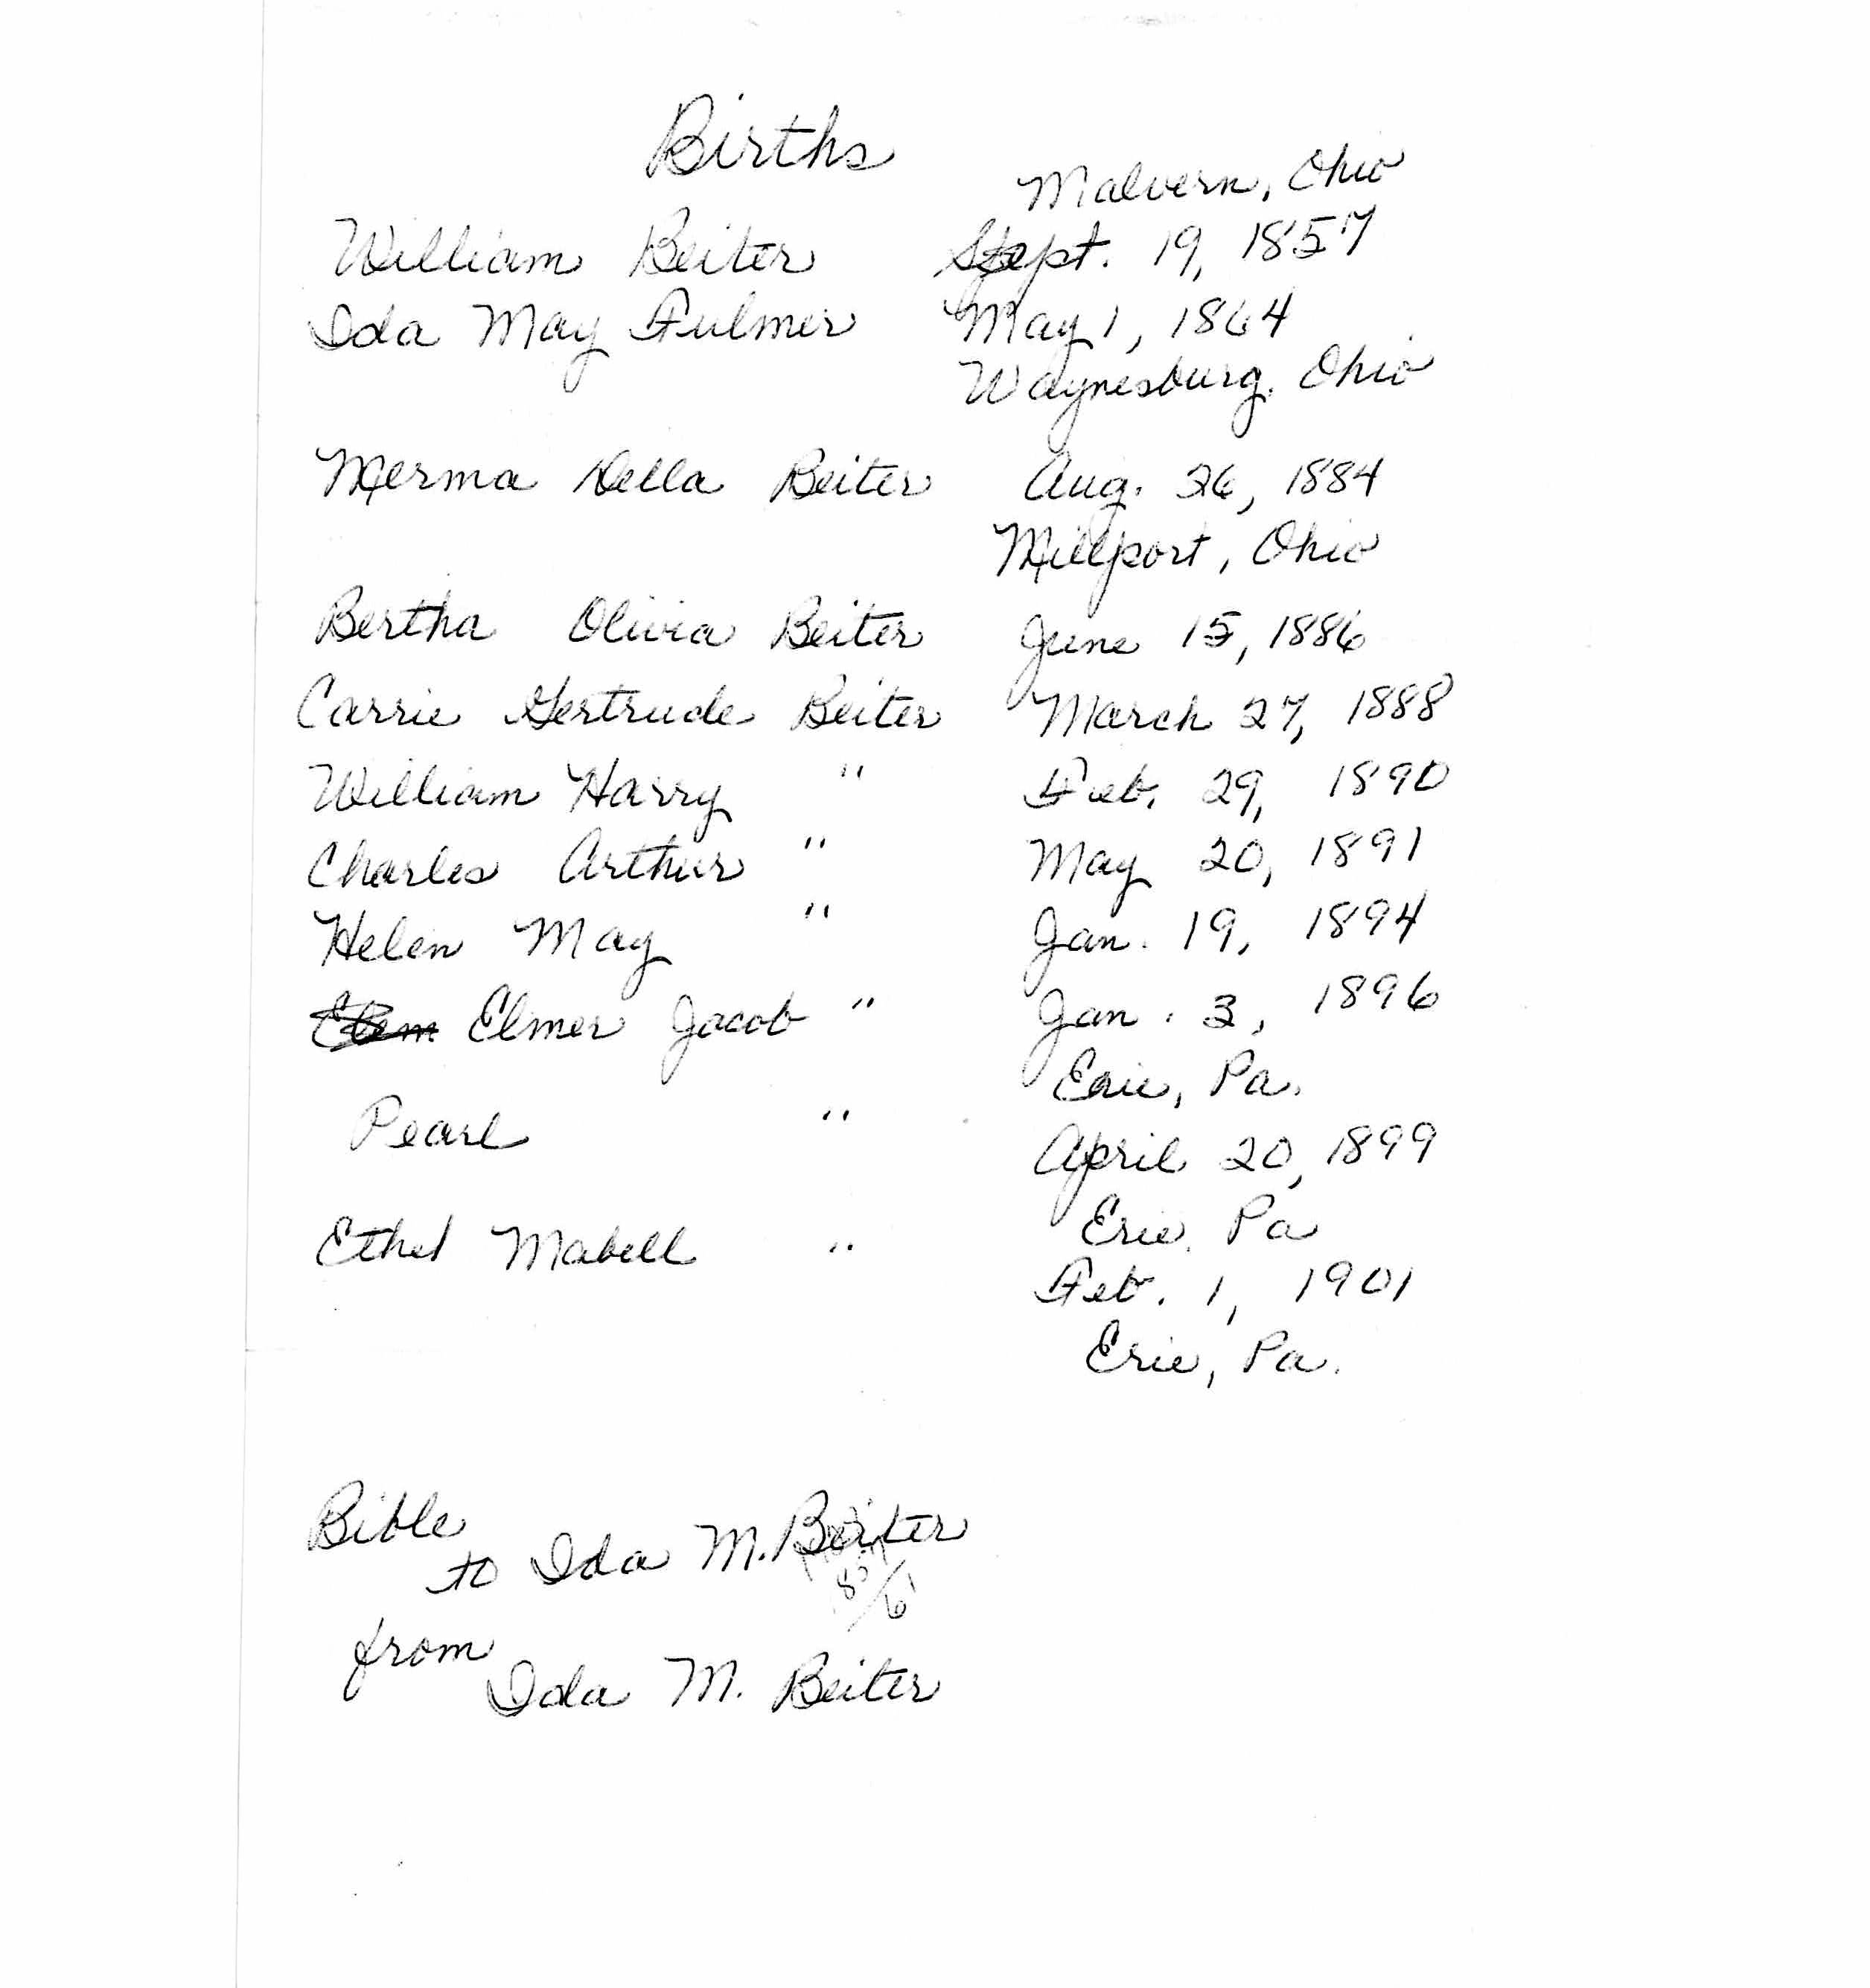 Births
Malvern, Ohio
William Beiter Sept. 19, 1857
Ida May Fulmer May 1, 1864
Waynesburg, Ohio
Merma Della Beiter Aug. 26, 1884
Millport, Ohio
Bertha Olivia Beiter June 15, 1886
Carrie Gertrude Beiter March 27, 1888
William Harry " Feb. 29, 1890
Charles Arthur " May 20, 1891
Helen May " Jan. 19, 1894
Elmer Jacob " Jan. 3, 1896
Erie, Pa.
Pearl "
April 20, 1899
Erie, Pa
Ethel Mabell "
Feb. 1, 1901
Erie, Pa.
Bible
to Ida M. Beiter
from
Ida M. Beiter